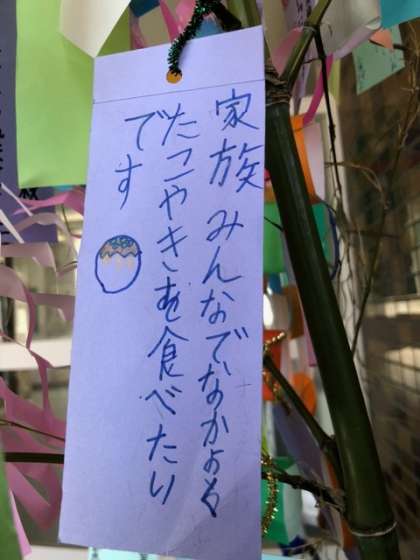 家族みんなでなかよく
たこやきを食べたい
です